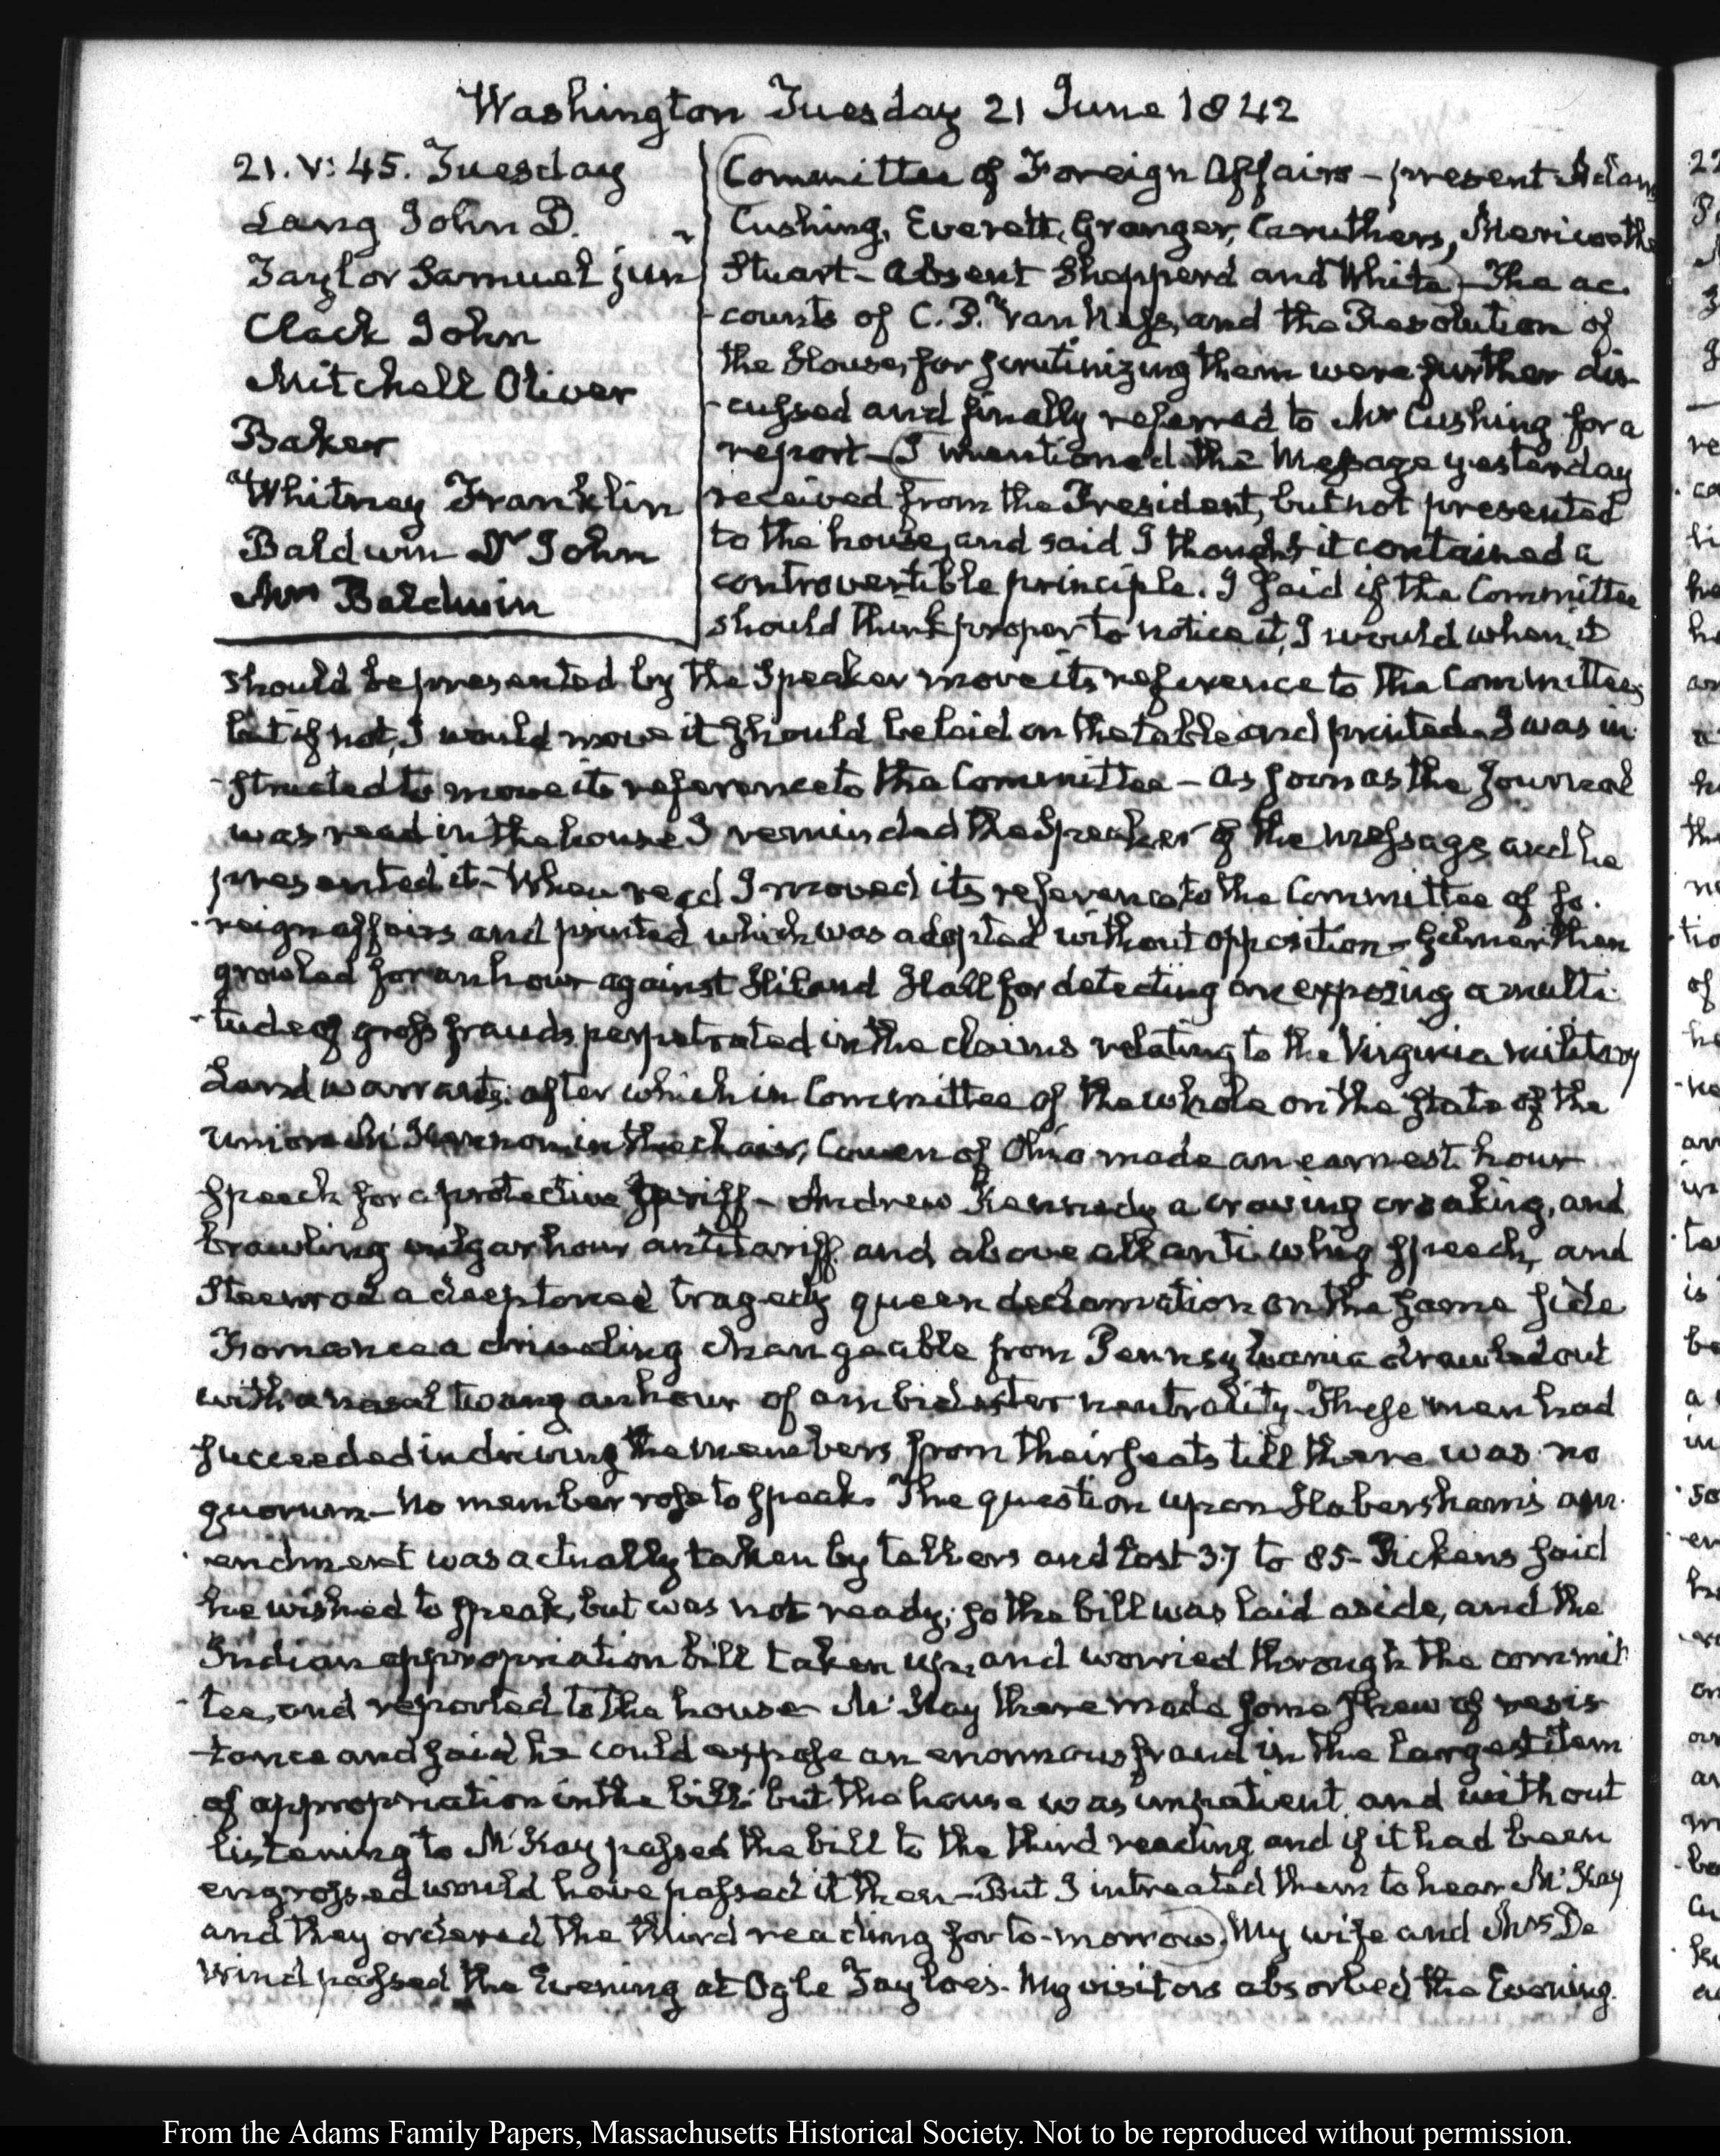 Washington Tuesday 21 June 1842
21. V: 45. Tuesday
Lang John D.
Taylor Samuel jun
Clack John
Mitchell Oliver
Baker
Whitney Franklin
Baldwin Dr John
Mrs Baldwin
Committee of Foreign Affairs - present Adams
Cushing, Everett, Granger, Caruthers, Meriwether
Stuart - Absent Shepperd and White - The ac-
-counts of C. P. Van Ness, and the Resolution of
the House, for scrutinizing them were further dis-
-cussed and finally referred to Mr Cushing for a
report - I mentioned the Message yesterday
received from the President, but not presented
to the house, and said I thought it contained a
controvertible principle. I said if the Committee
should think proper to notice it, I would when it
should be presented by the Speaker move its reference to the Committee,
but if not, I would move it should be laid on the table and printed. I was in-
-structed to move its reference to the Committee - As soon as the Journal
was read in the house I reminded the Speaker of the message and he
presented it - When read I moved its reference to the Committee of fo-
-reign affairs and printed which was adopted without opposition - Gilmer then
growled for an hour against Hiland Hall for detecting and exposing a multi-
-tude of gross frauds perpetrated in the claims relating to the Virginia military
Land warrants: after which in Committee of the whole on the state of the
Union McKennon in the chair, Cowen of Ohio made an earnest hour
speech for a protective tariff - Andrew Kennedy a crowing croaking, and
brawling vulgar hour antitariff and above all anti whig speech, and
Steenrod a deep toned tragedy queen declamation on the same side
Fornance a driveling changeable from Pennsylvania drawled out
with a nasal twang an hour of ambidexter neutrality. These men had
succeeded in driving the members from their seats till there was no
quorum - No member rose to speak. The question upon Habersham's am-
-endment was actually taken by tellers and lost 37 to 85 - Pickens said
he wished to speak, but was not ready; so the bill was laid aside, and the
Indian appropriation bill taken up, and worried through the commit-
-tee, and reported to the house - McKay there made some shew of resis-
-tance and said he could expose an enormous fraud in the largest item
of appropriation in the bill: but the house was impatient and without
listening to McKay passed the bill to the third reading and if it had been
engrossed would have passed it then - But I intreated them to hear McKay
and they ordered the third reading for to-morrow. My wife and Mrs De
Wind passed the Evening at Ogle Tayloe's. My visitors absorbed the Evening.
From the Adams Family Papers, Massachusetts Historical Society. Not to be reproduced without permission.